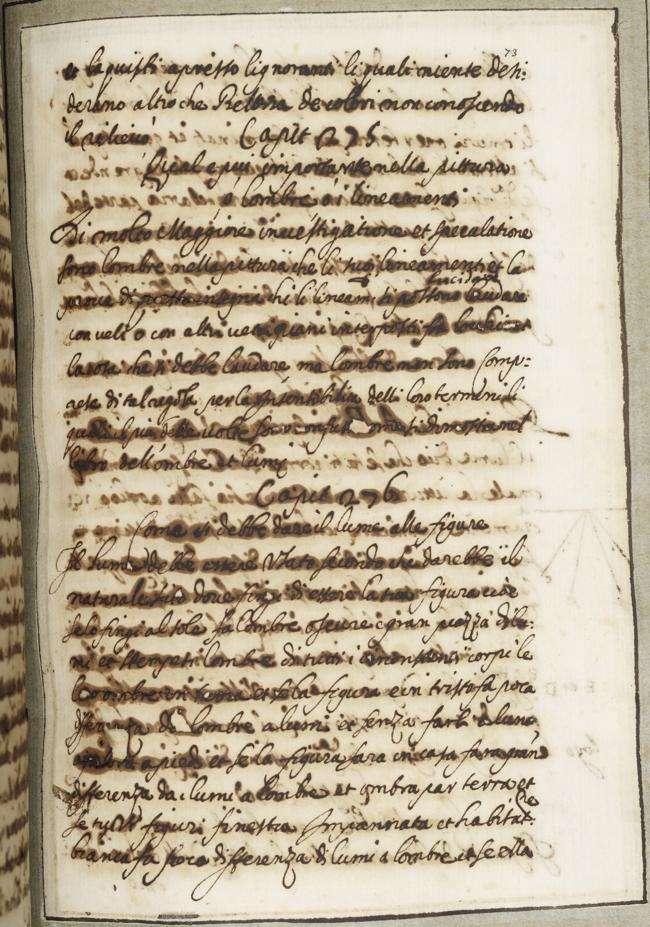 73
apresso lignoranti li quali niente desi:
derano altro che Belleza de colori non conoscendo
il rilievo Capit 275
Qual e piu importante nella pittura
o lombre o i lineamenti
Di molto Maggiore investigatione et specalatione
sono lombre nella pittura che li suoi lineamenti et la
prova di questo insegna chi li lineam.ti possono lucidare
con veli o con altri vetri piani interposti fra locchio et
la cosa che si debbe laudare ma lombre non sono Comp:
rese di tal regola per la insensibilia delli loro termini li
quali il piu delle volte sono confusi Come si dimostra nel
libro dell'ombre et lumi
Capit 276
Come si debbe dare il lume alle figure
Il lume debbe essere Usato secondo che darebbe il
naturale sito dove fingi di essere la tua figura cioe
se lo fingi al sole fa lombre oscure e gran piazza di lu:
mi et stempeti lombre di tutti i circonstanti corpi le
loro ombre in terra et se la figura e in tristo fa poca
differenza da lombre a lumi et senza farli
a piedi et se la figura sara in casa fara gran
differenza da i lumi a lombre et ombra par terra et
se tu figuri finestra Impannata et habitat:ne
bianca fa poca differenza di lumi a lombre et se ella